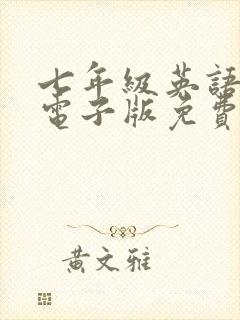 七年級英語
電子版免費
黃文雅